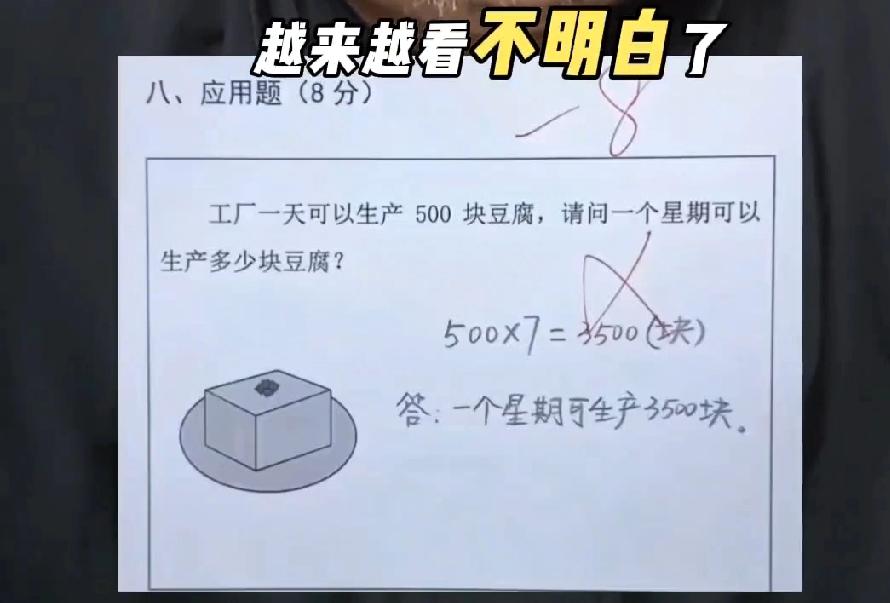 越来越看不明白了
八、应用题（8分）
-8
工厂一天可以生产 500 块豆腐，请问一个星期可以
生产多少块豆腐？
500×7=3500(块)
答：一个星期可生产3500块。